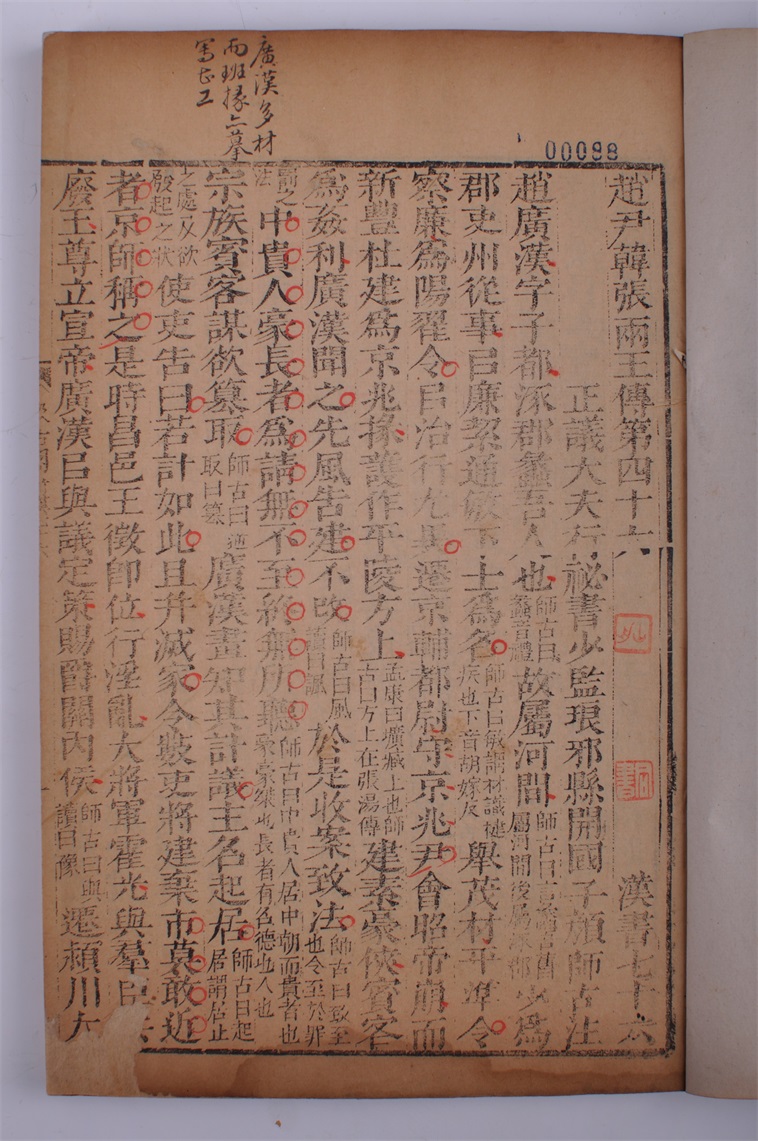 廣漢多材
而班掾亦摹
寫甚工
00098
趙尹韓張兩王傳第四十六 漢書七十六
正議大夫行祕書少監琅邪縣開國子顏師古注
趙廣漢字子都涿郡蠡吾人也師古曰蠡音禮故屬河間師古曰言蠡吾舊屬河間後屬涿郡少為
郡吏州從事㠯廉絜通敏下士為名師古曰敏謂材識捷疾也下音胡嫁反舉茂材平準令
察廉為陽翟令㠯治行尤異遷京輔都尉守京兆尹會昭帝崩而
新豐杜建為京兆掾護作平陵方上孟康曰壙臧上也師古曰方上在張湯傳建素豪俠賓客
為姦利廣漢聞之先風告建不改師古曰風讀曰諷於是收案致法師古曰致至也令至於罪
罰之法中貴人豪長者為請無不至終無所聽師古曰中貴人居中朝而貴者也豪豪桀也長者有名德之人也
宗族賓客謀欲篡取師古曰逆取曰篡廣漢盡知其計議主名起居師古曰起居謂居止
之處及欲發起之狀使吏告曰若計如此且并滅家令數吏將建棄市莫敢近
者京師稱之是時昌邑王徵即位行淫亂大將軍霍光與羣臣共
廢王尊立宣帝廣漢㠯與議定策賜爵關內侯師古曰與讀曰豫遷潁川太